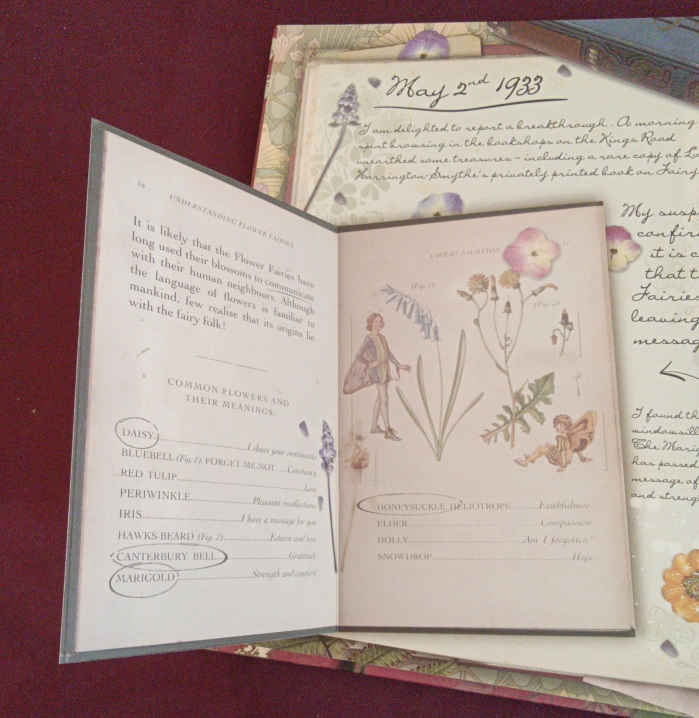 May 2nd 1933
I am delighted to report a breakthrough. A morning
spent browsing in the bookshops on the Kings Road
unearthed some treasures - including a rare copy of
Harrington-Smythe's privately printed book on Fairy
My
it is
that
Fairie
leaving
messag
I found th
windowsill
The Marig
has passed
message of
and streng
UNDERSTANDING FLOWER FAIRIES
It is likely that the Flower Fairies have
long used their blossoms to communicate
with their human neighbours. Although
the language of flowers is familiar to
mankind, few realise that its origins lie
with the fairy folk!
COMMON FLOWERS AND
THEIR MEANINGS:
DAISY I share your sentiments
BLUEBELL (Fig 1), FORGET ME NOT Constancy
RED TULIP Love
PERIWINKLE Pleasant recollections
IRIS I have a message for you
HAWKS BEARD (Fig 2)
CANTERBURY BELL Gratitude
MARIGOLD Strength and comfort
(Fig 1)
(Fig 2)
HONEYSUCKLE, HELIOTROPE Faithfulness
ELDER Compassion
HOLLY Am I forgotten?
SNOWDROP Hope